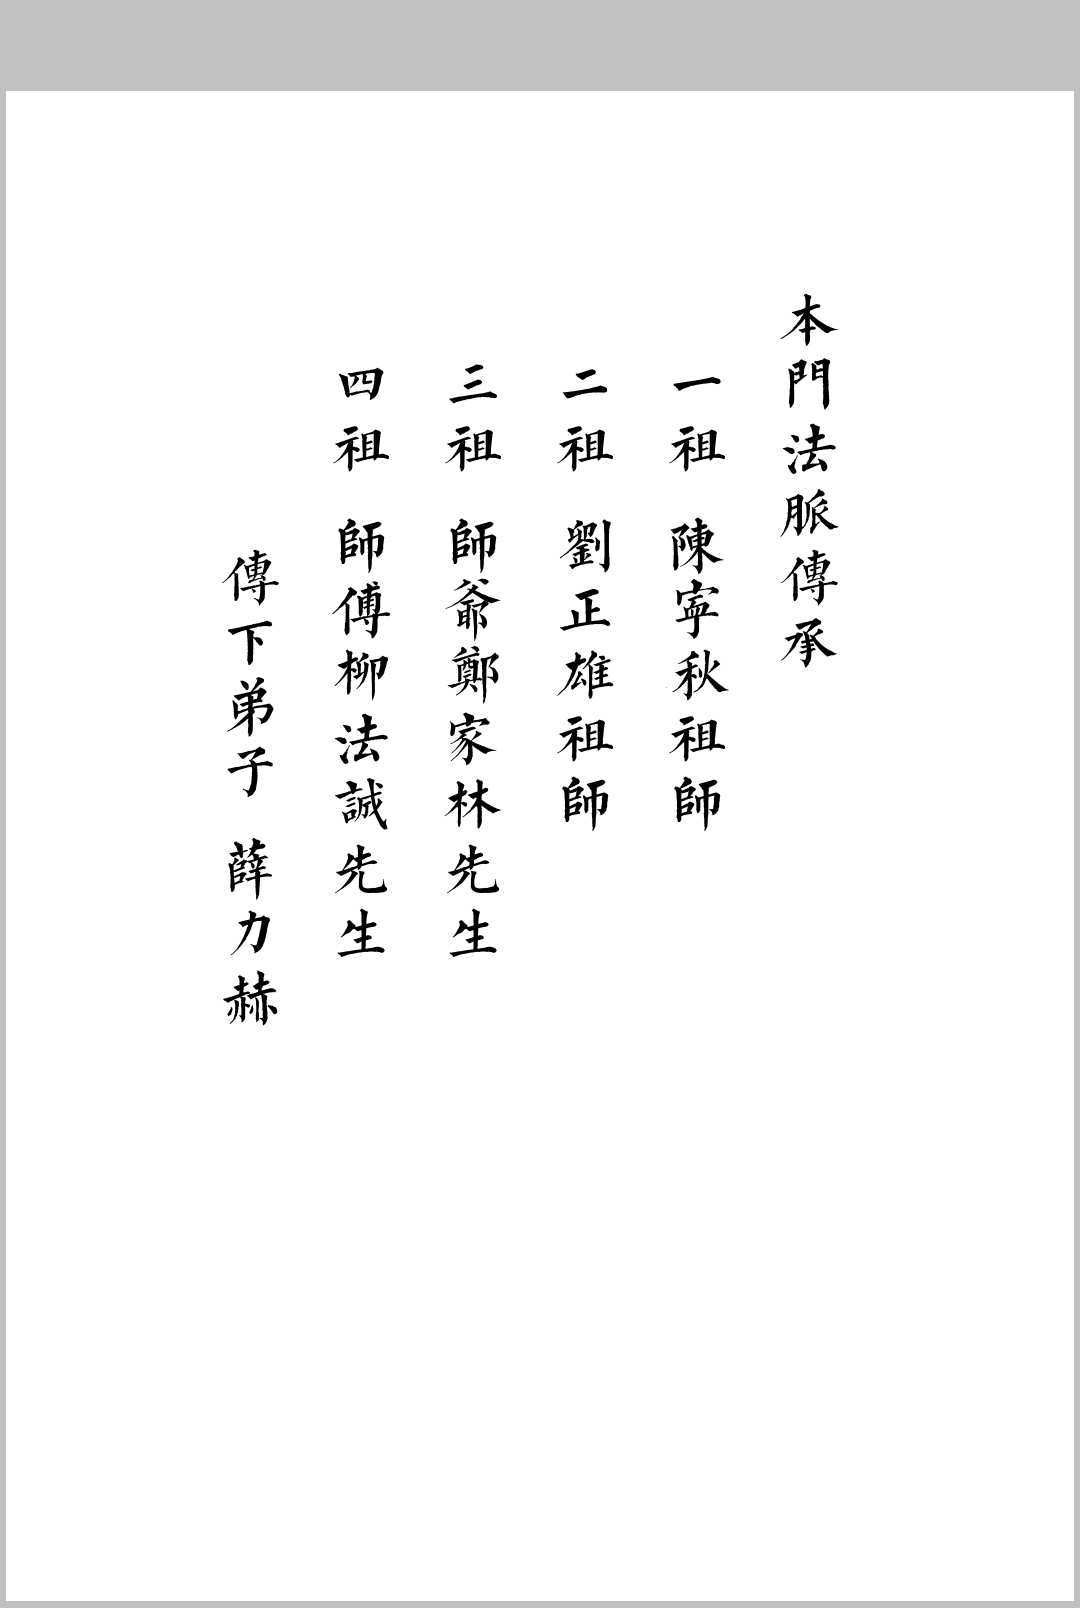 本門法脈傳承
一祖 陳寍秋祖師
二祖 劉正雄祖師
三祖 師爺鄭家林先生
四祖 師傅柳法誠先生
傳下弟子 薛力赫